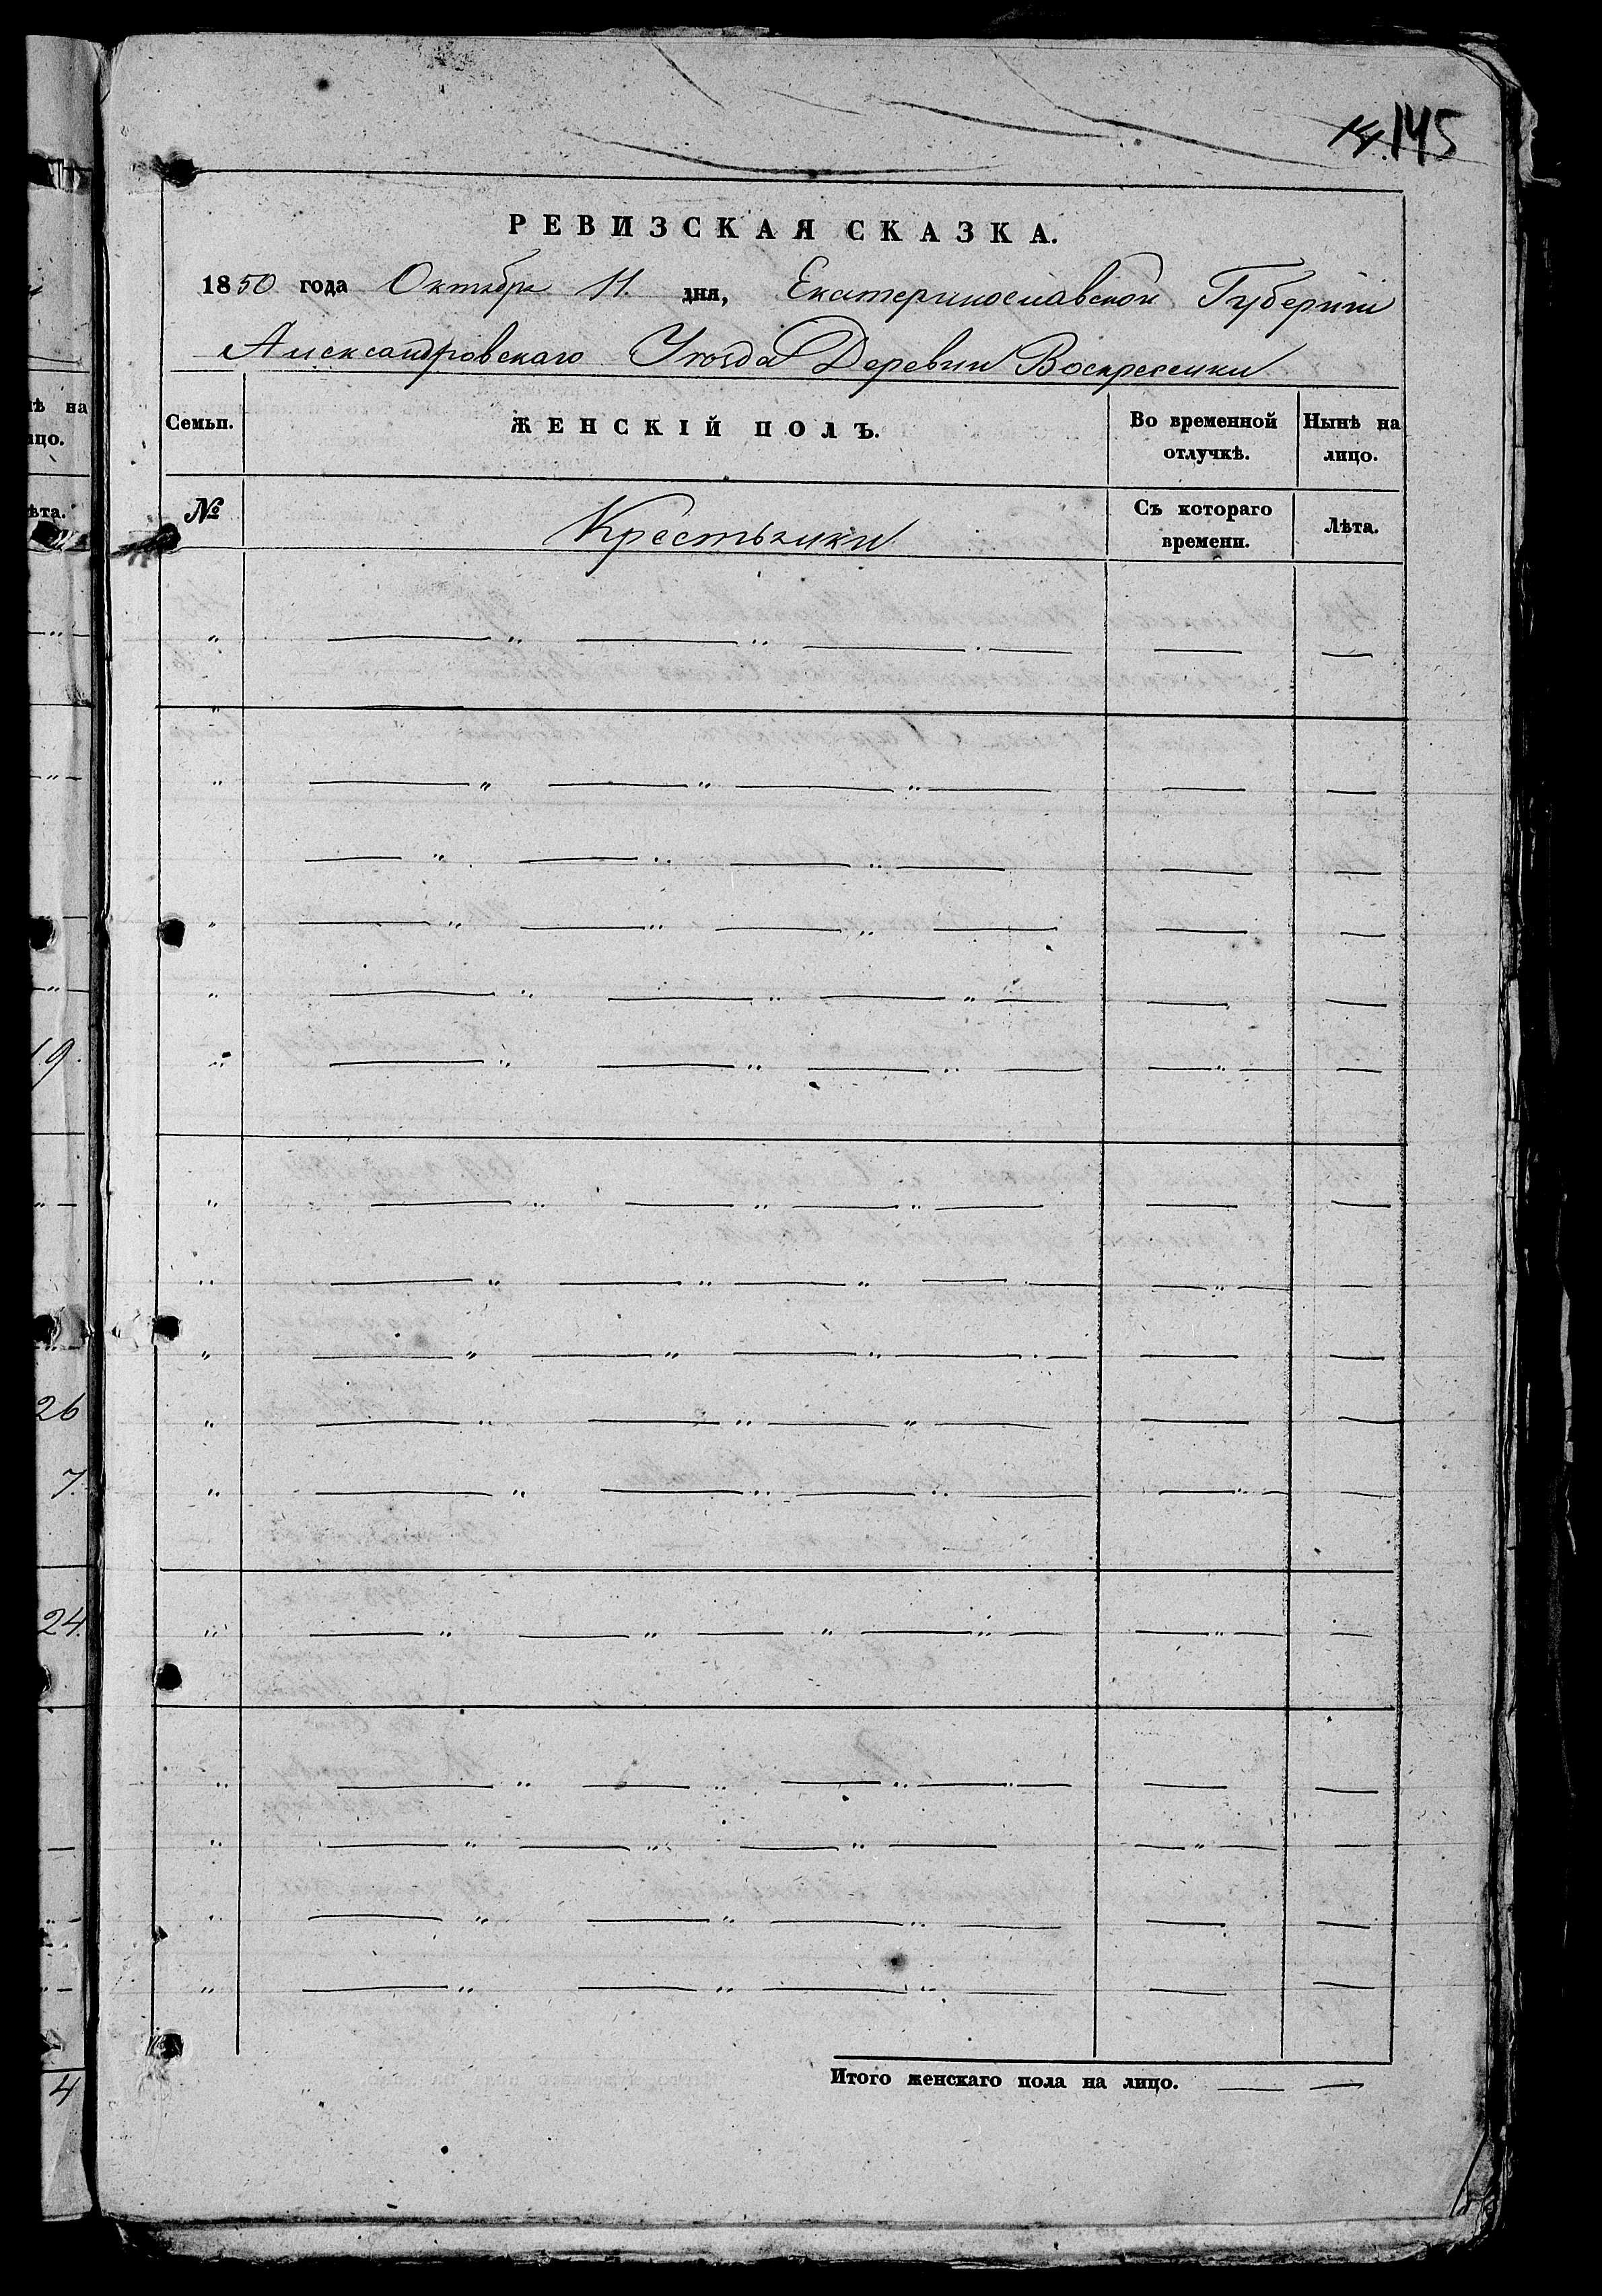 145
РЕВИЗСКАЯ СКАЗКА.
1850 года Октября 11. дня, Екатеринославской Губерніи
Александровскаго Уѣзда Деревни Воскресенки
Семьи. ЖЕНСКІЙ ПОЛЪ. Во временной отлучкѣ. Нынѣ на лицо.
№ Крестьянки Съ котораго времени. Лѣта.
19.
26
7.
24.
4
Итого женскаго пола на лицо.